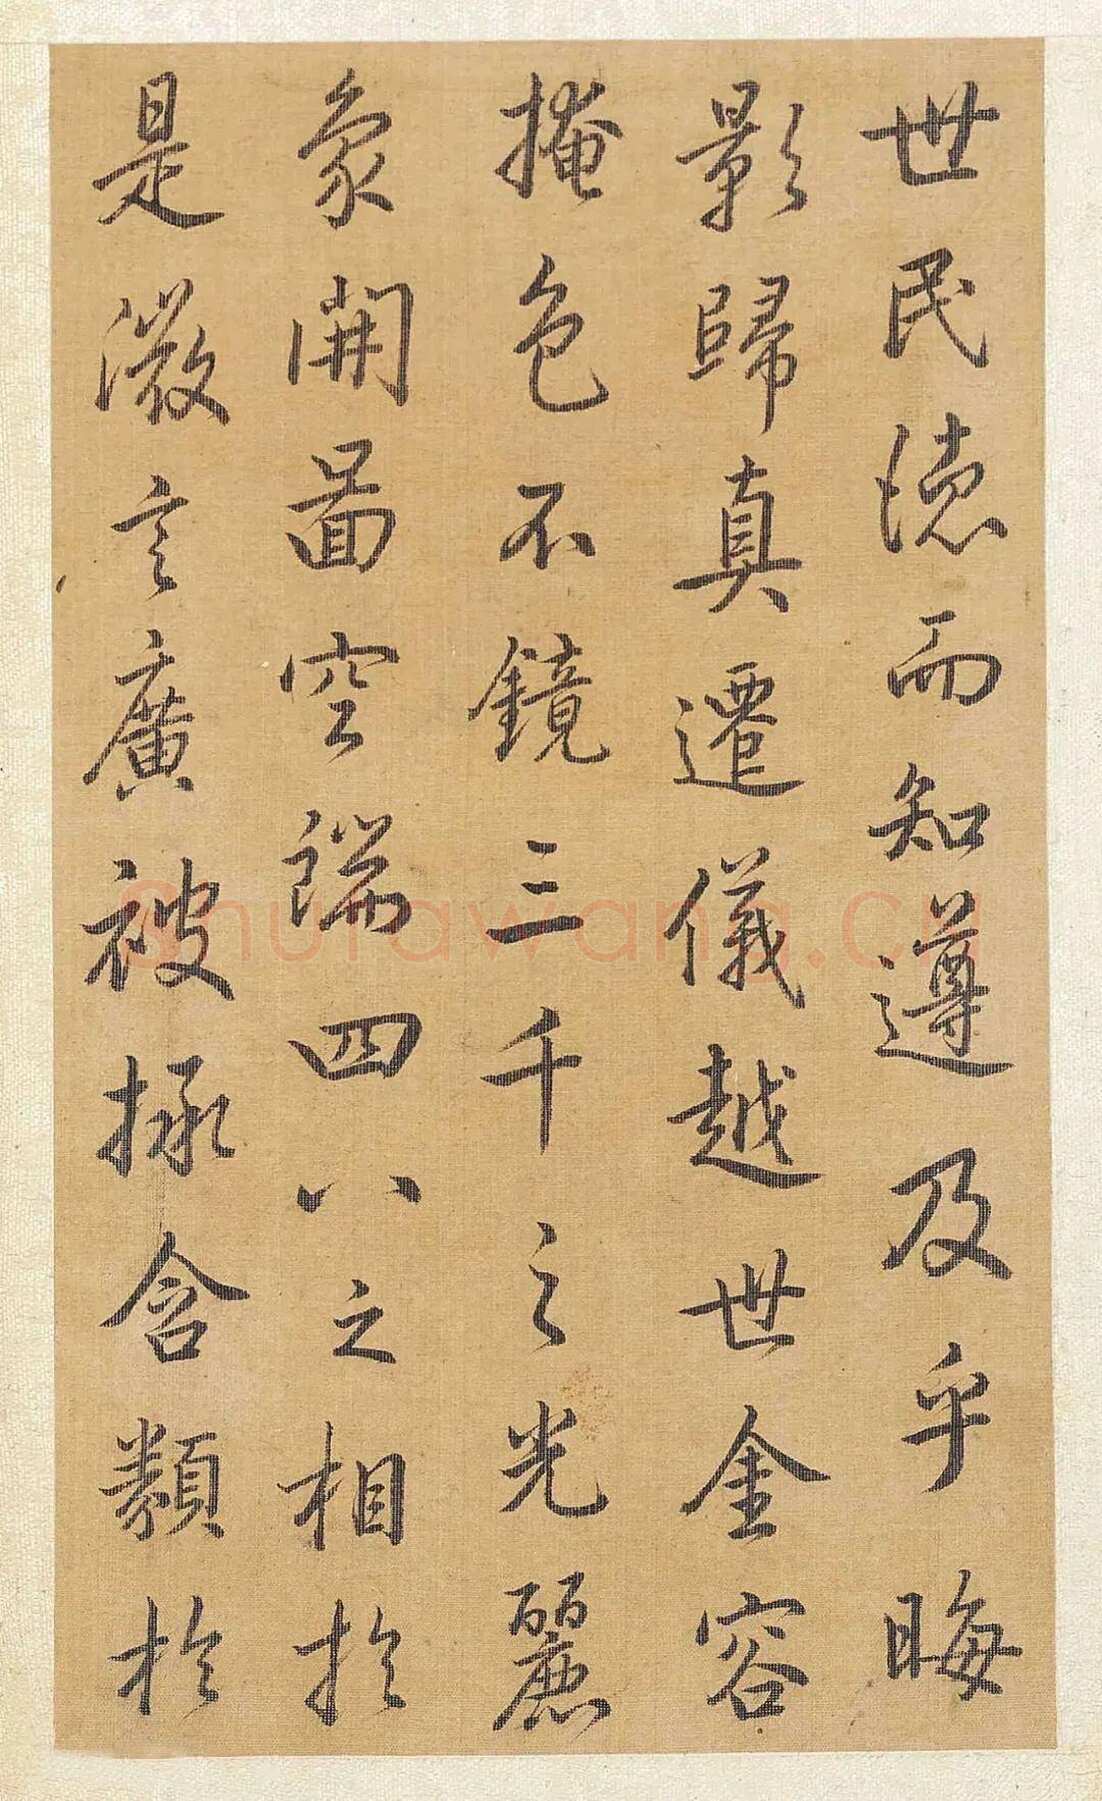 世民德而知遵及乎晦
影歸真遷儀越世金容
掩色不鏡三千之光麗
象開圖空端四八之相於
是微言廣被拯含類於